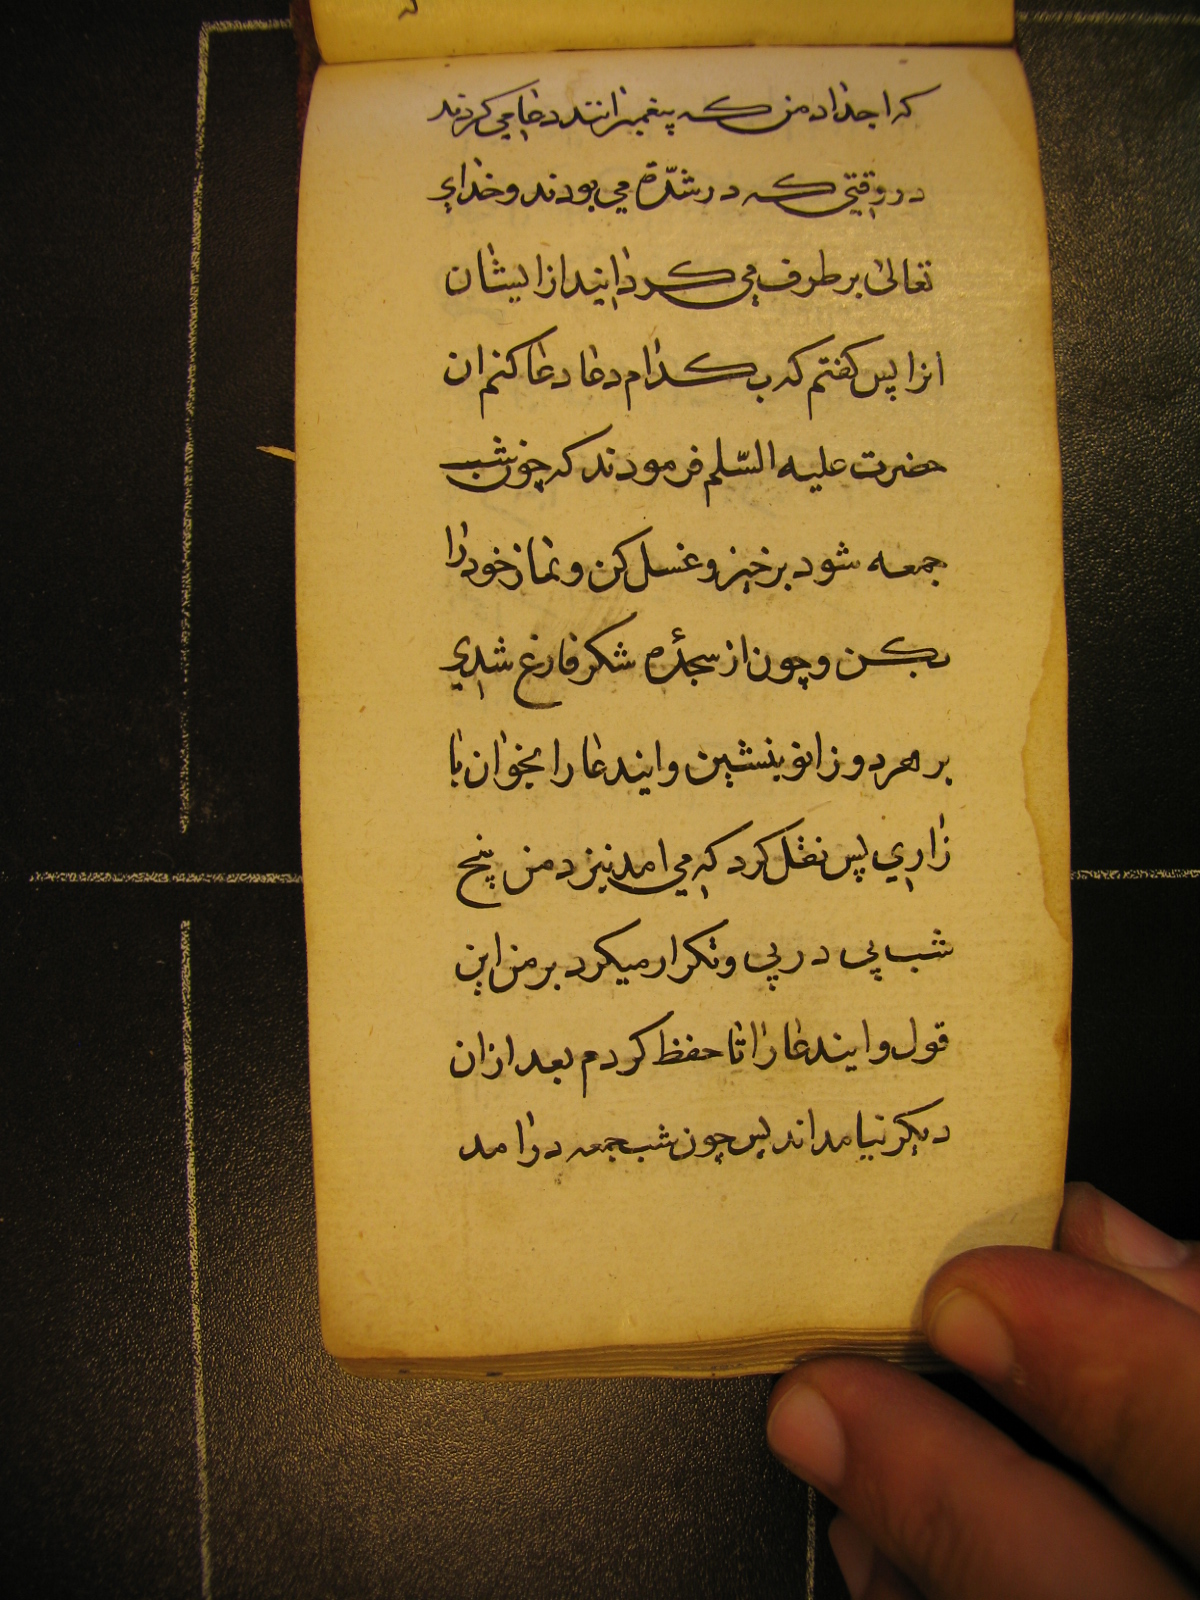 که اجداد من که پیغمبرانند دعا می کردند
در وقتی که در شدّة می بودند و خدای
تعالی بر طرف می کردانیدازایشان
انرا پس کفتم که ب کدام دعا دعا کنم ان
حضرت علیه السّلم فرمودند که چون شب
جمعه شود برخیز و غسل کن و نماز خود را
بکن و چون از سجدۀ شکر فارغ شدی
بر هر دو زانو بنشین و ایندعا را بخوان با
زاری پس نقل کرد که می امد نیزد من پنج
شب پی در پی و تکرار میکرد بر من این
قول و ایندعا را تا حفظ کردم بعد ازان
دیکر نیامداند پس چون شب جمعه درامد